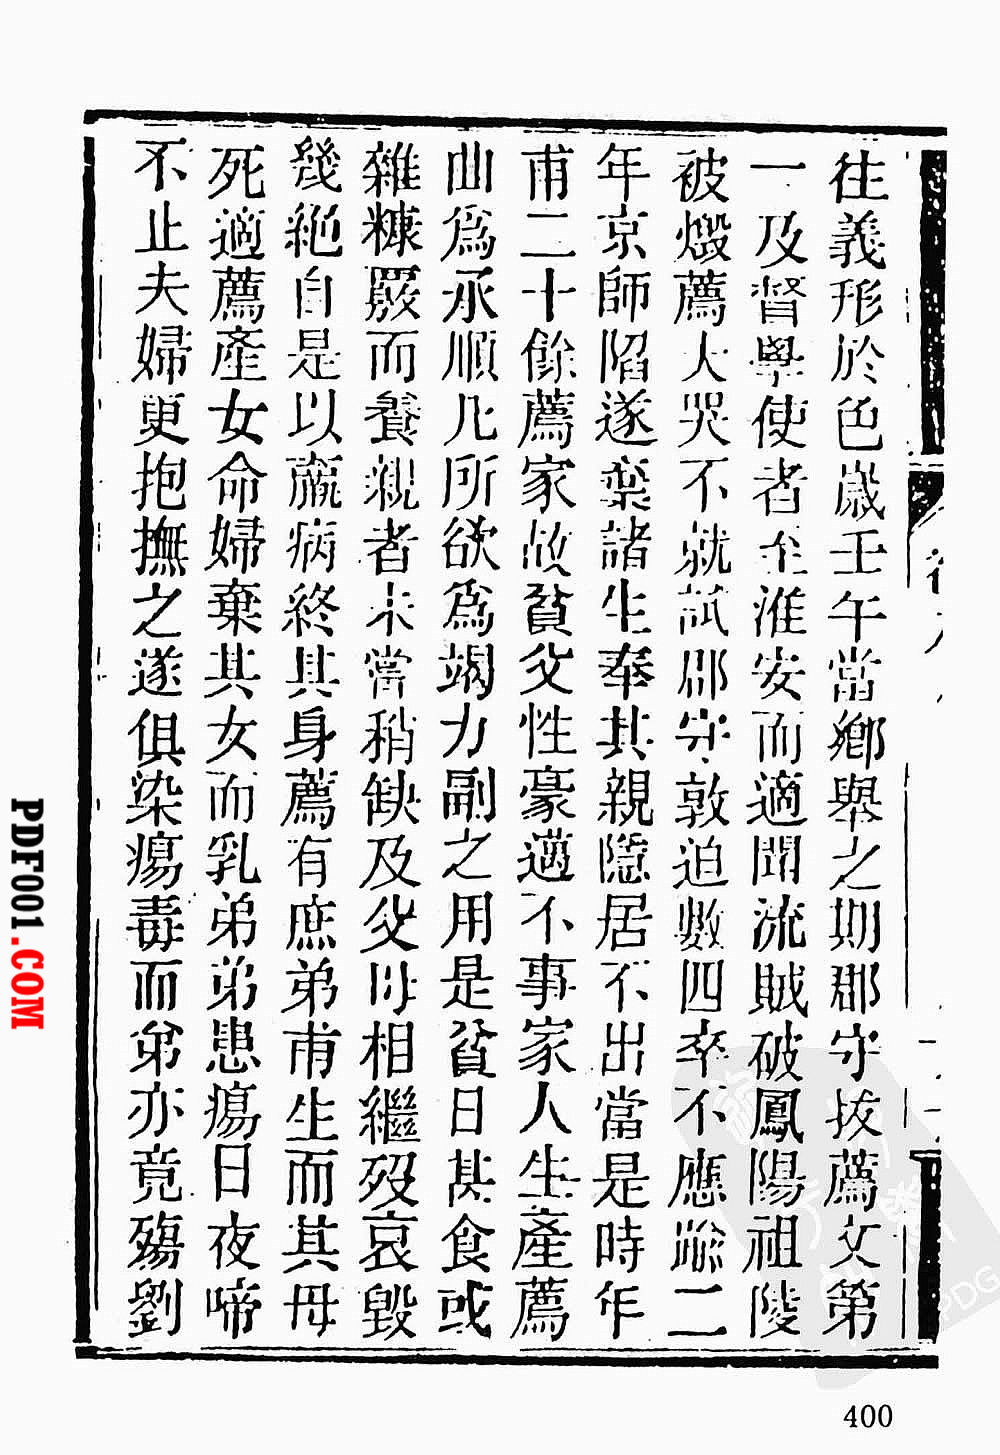 往義形於色歲壬午當鄉舉之期郡守拔薦文第
一及督學使者至淮安而適聞流賊破鳳陽祖陵
被燬薦大哭不就試郡守敦迫數四卒不應踰二
年京師陷遂棄諸生奉其親隱居不出當是時年
甫二十餘薦家故貧父性豪邁不事家人生產薦
曲為承順凡所欲為竭力副之用是貧日甚食或
雜糠覈而養親者未嘗稍缺及父母相繼歿哀毀
幾絕自是以羸病終其身薦有庶弟甫生而其母
死適薦產女命婦棄其女而乳弟弟患瘍日夜啼
不止夫婦更抱撫之遂俱染瘍毒而弟亦竟殤劉
400
PDF001.COM
PDG